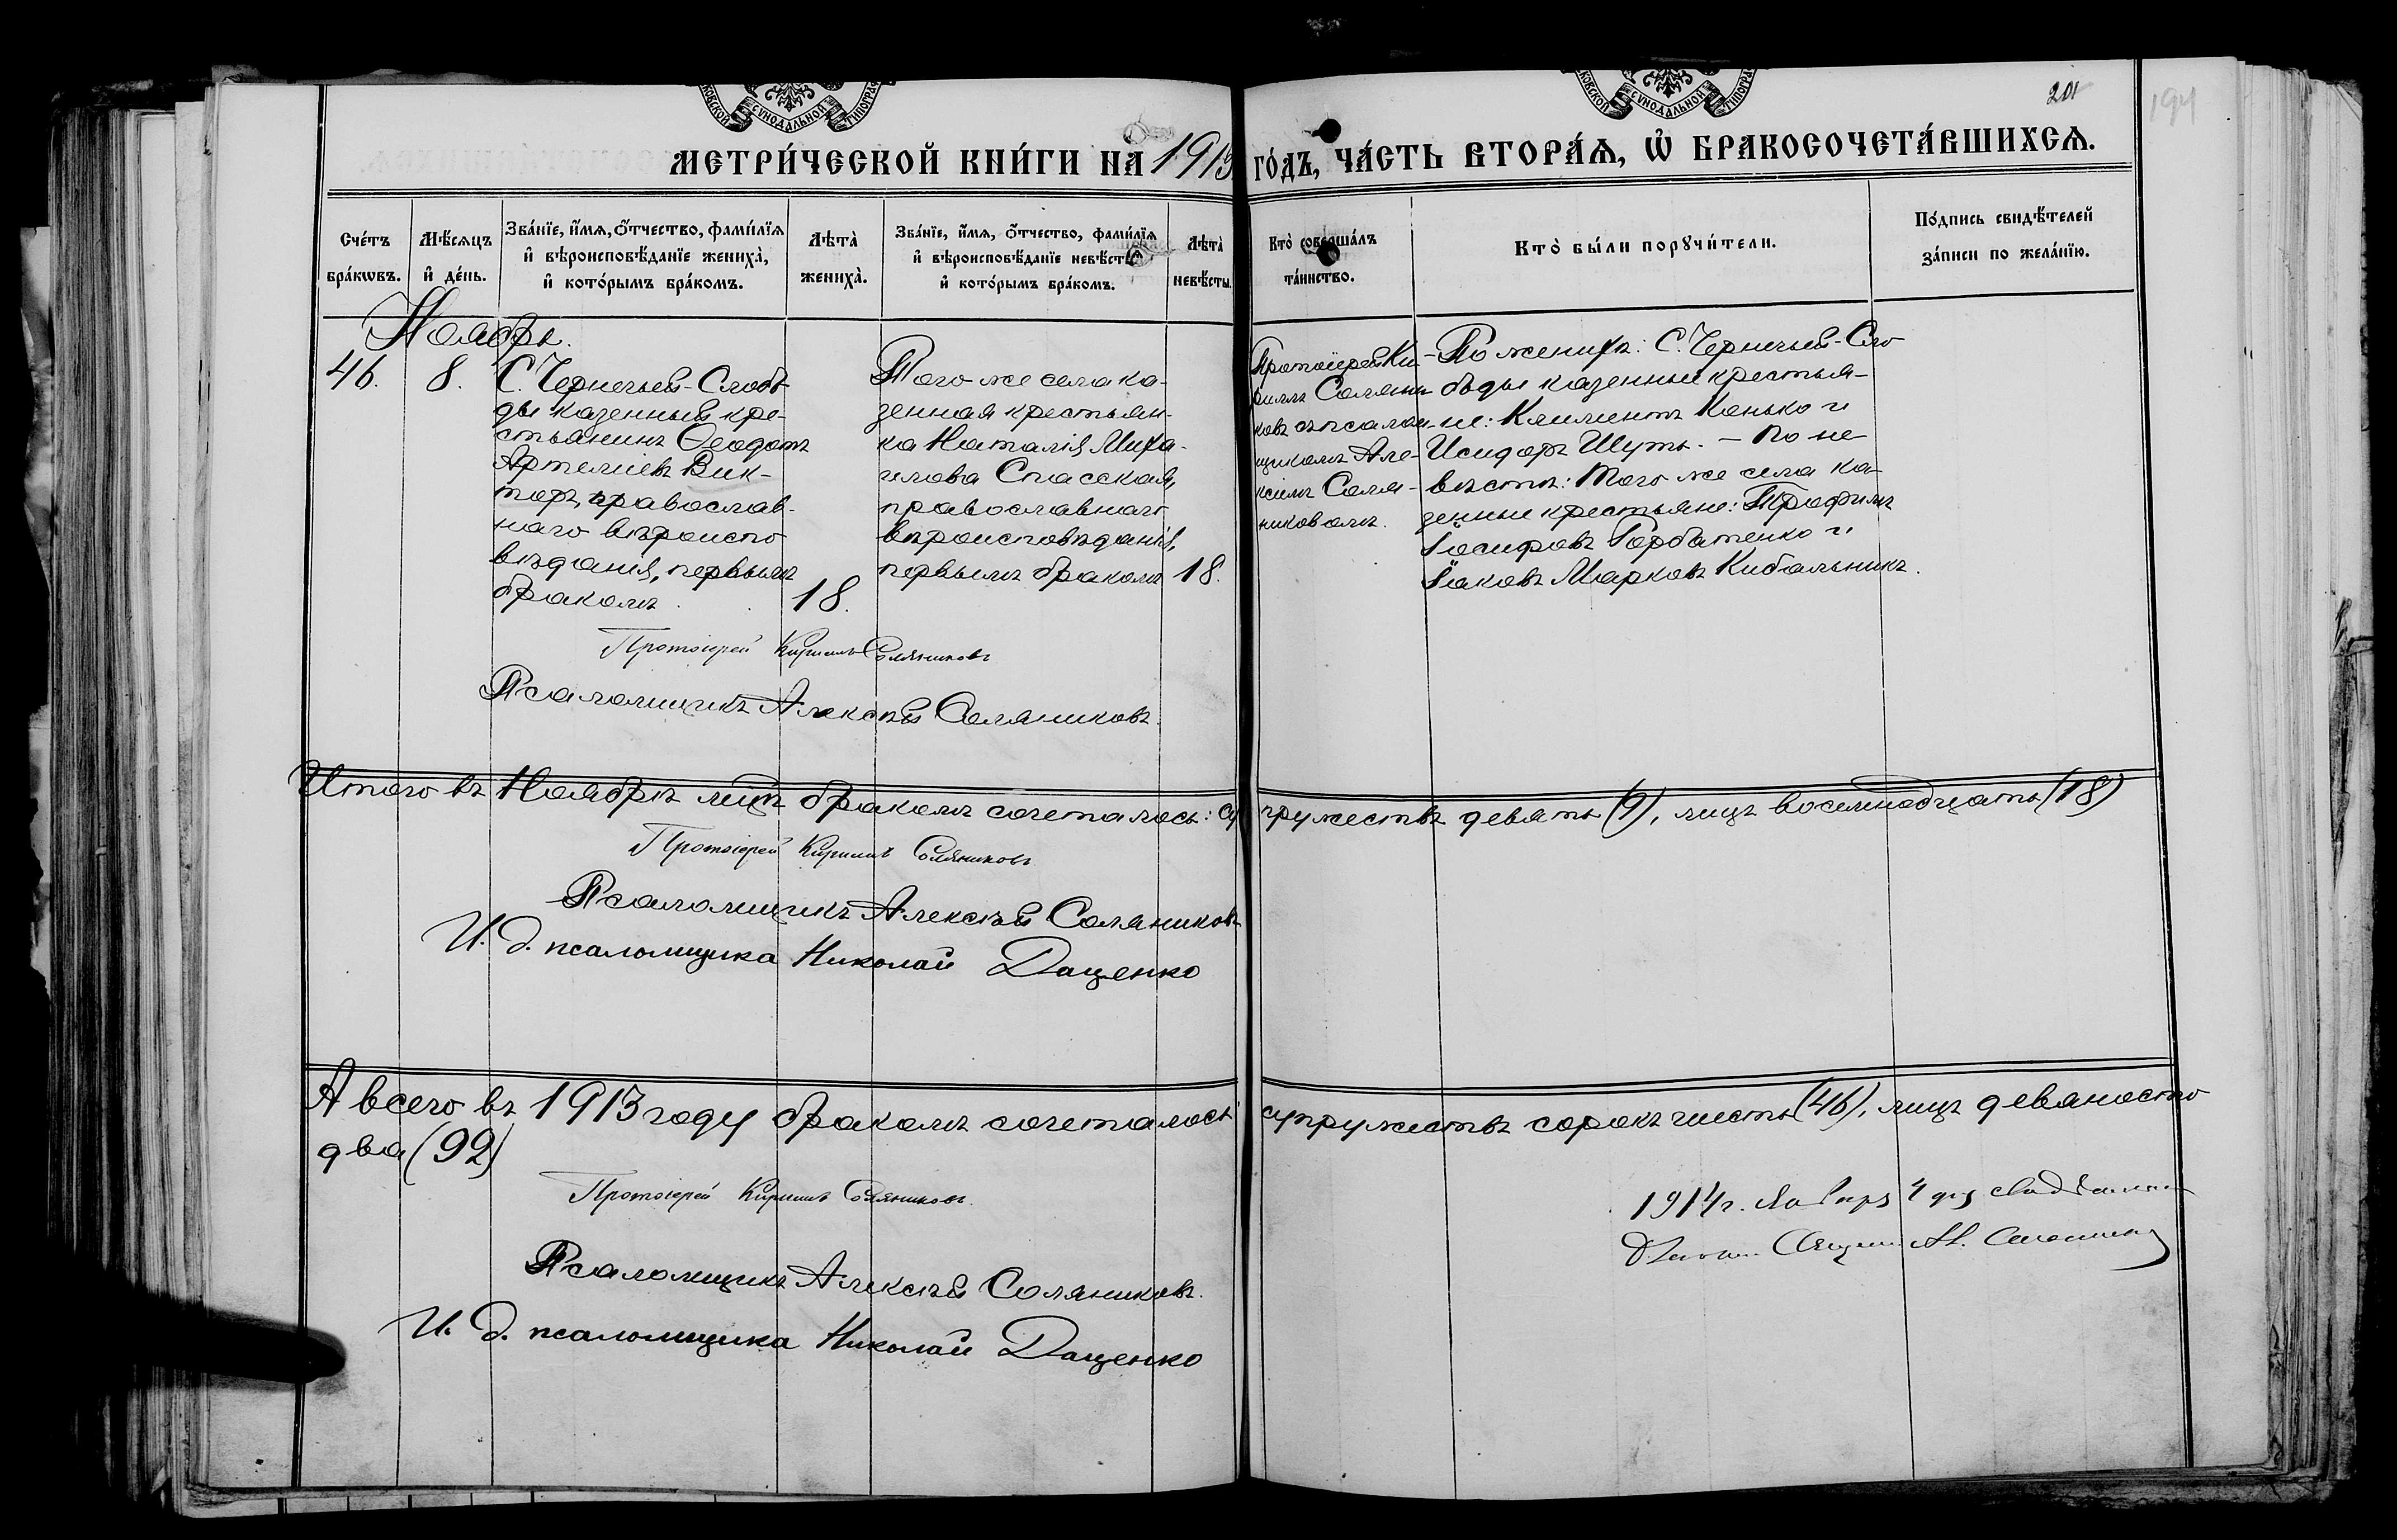 КОВСКОЙ СУНОДАЛЬНОЙ ТИПОГРАФ
КОВСКОЙ СУНОДАЛЬНОЙ ТИПОГРАФ
201
194
МЕТРИ́ЧЕСКОЙ КНИ́ГИ НА 1913 ГО́ДЪ, ЧА́СТЬ ВТОРА́Ѧ, Ѽ БРАКОСОЧЕТА́ВШИХСѦ.
Сче́тъ бра́кѡвъ.
Мѣ́сяцъ и҆ де́нь.
Зва́нїе, и҆́мѧ, ѻ҆́тчество, фами́лїѧ
и҆ вѣроисповѣ́данїе жениха̀,
и҆ кото́рымъ бра́комъ.
Лѣта̀ жениха̀.
Зва́нїе, и҆́мѧ, ѻ҆́тчество, фами́лїѧ
и҆ вѣроисповѣ́данїе невѣ́сты,
и҆ кото́рымъ бра́комъ.
Лѣта̀ невѣ́сты.
Кто̀ соверша́лъ
та́инство.
Кто̀ бы́ли порꙋчи́тели.
По́дпись свидѣ́телей
за́писи по жела́нїю.
Ноябрь.
46.
8.
С. Чернечьей-Слобо-
ды казенный кре-
стьянинъ Ѳеодотъ
Артеміевъ Вик-
торъ, православ-
наго вѣроиспо
вѣданія, первымъ
бракомъ.
18.
Того же села ка-
зенная крестьян-
ка Наталія Миха-
илова Спасская,
православнаго
вѣроисповѣданія,
первымъ бракомъ
18.
Протоіерей Ки-
риллъ Соляни-
ковъ съ псалом-
щикомъ Але-
ксіемъ Соля-
никовымъ.
По женихѣ: С. Чернечьей-Сло
боды казенные крестья-
не: Климентъ Конько и
Исидоръ Шуть. – По не
вѣстѣ: Того же села ка-
зенные крестьяне: Трофимъ
Іосифовъ Горбатенко и
Іаковъ Марковъ Кибальникъ.
Протоіерей Кириллъ Соляниковъ
Псаломщикъ Алексѣй Соляниковъ.
Итого въ Ноябрѣ лицъ бракомъ сочеталось: супружествъ девять (9), лицъ восемнадцать (18)
Протоіерей Кириллъ Соляниковъ
Псаломщикъ Алексѣй Соляниковъ
И. д. псаломщика Николай Даценко
А всего въ 1913 году бракомъ сочеталось: супружествъ сорокъ шесть (46), лицъ девяносто
два (92)
Протоіерей Кириллъ Соляниковъ.
Псаломщикъ Алексѣй Соляниковъ.
И. д. псаломщика Николай Даценко
1914 г. Января 4 дня